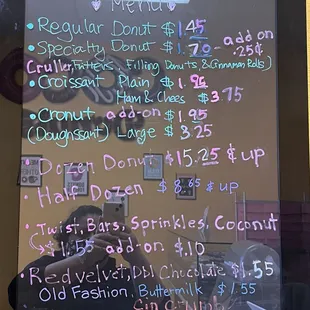 Menu
• Regular Donut $1.45
• Specialty Donut $1.70 - add on .25¢
Cruller, Fritters, Filling Donuts & Cinnamon Rolls)
• Croissant Plain $1.95
Ham & Chees $3.75
• Cronut add-on $1.95
(Doughssant) Large $3.25
• Dozen Donut $15.25 & up
• Half Dozen $8.65 & up
• Twist, Bars, Sprinkles, Coconut
$1.55 add-on $.10
• Red velvet, Dbl Chocolate $1.55
Old Fashion, Buttermilk $1.55